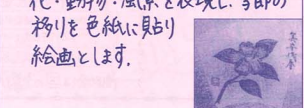 花・動物・風景を表現し、季節の
移りを色紙に貼り
絵画とします。